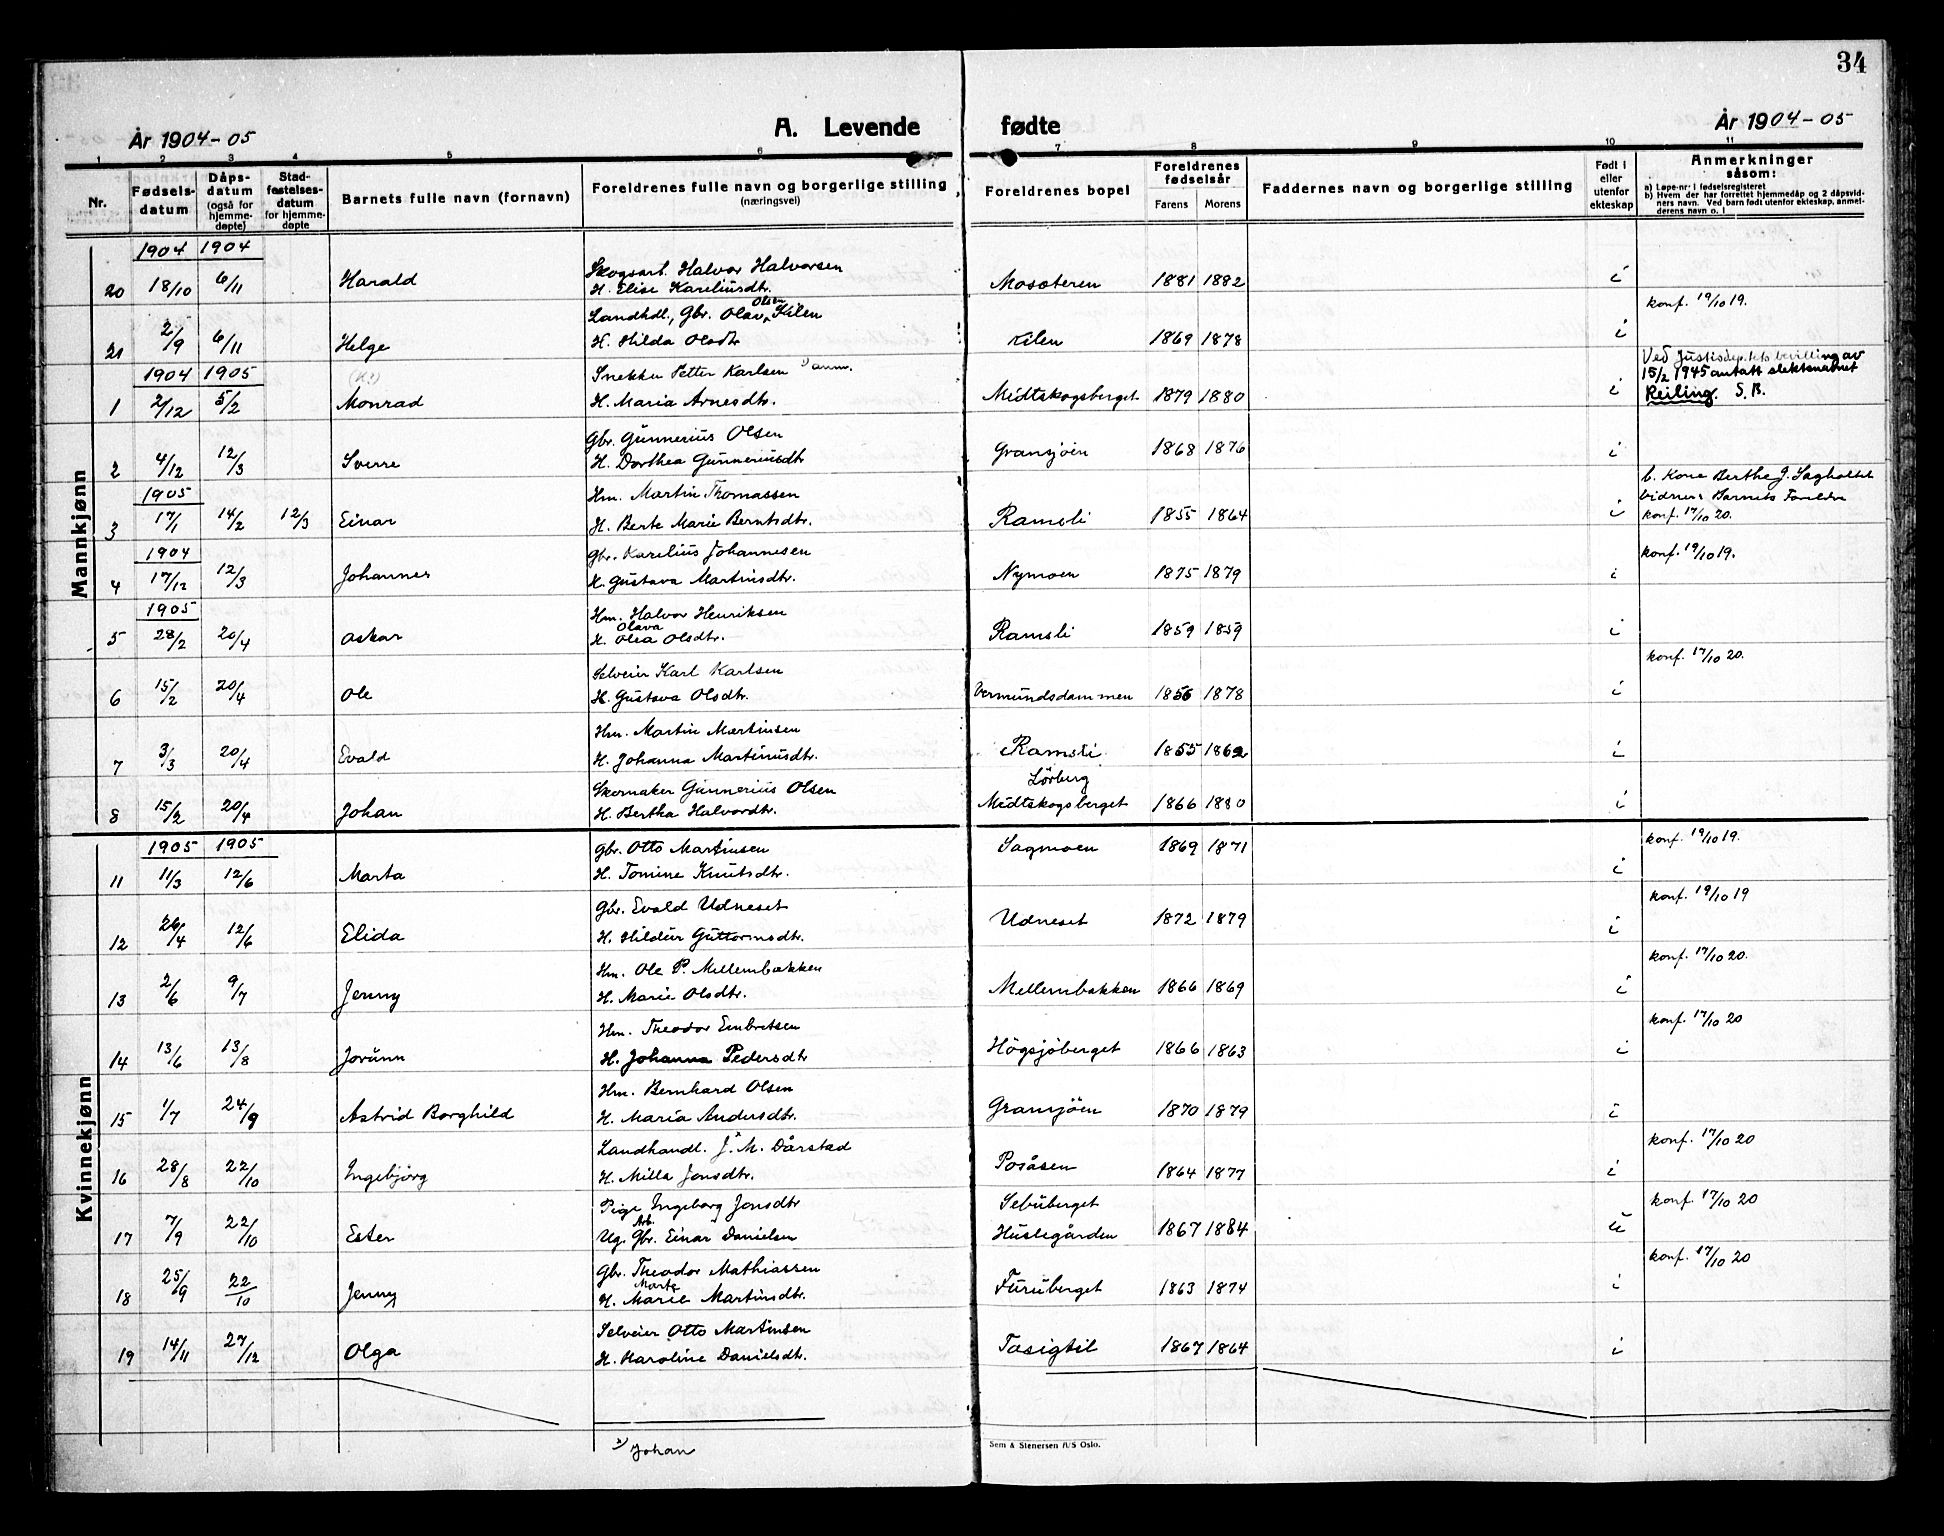 34
År 1904-05 A. Levende fødte År 1904-05
1 2 3 4 5 6 7 8 9 10 11
Nr. Fødsels-datum Dåps-datum (også for hjemme-døpte) Stad-festelses-datum for hjemme-døpte Barnets fulle navn (fornavn) Foreldrenes fulle navn og borgerlige stilling (næringsvei) Foreldrenes bopel Foreldrenes fødselsår Farens Morens Faddernes navn og borgerlige stilling Født i eller utenfor ekteskap Anmerkninger såsom:
a) Løpe-nr. i fødselsregisteret
b) Hvem der har forrettet hjemmedåp og 2 dåpsvid-
ners navn. Ved barn født utenfor ekteskap, anmel-
derens navn o. l
Mannkjønn
1904 1904
Skogsarb. Halvor Halvorsen
20 18/10 6/11 Harald H. Elise Kareliusdtr. Mosæteren 1881 1882 i
Landhdl., Gbr. Olav Olsen Kilen konf. 19/10 19.
21 2/9 6/11 Helge H. Hilda Olsdtr Kilen 1869 1878 i
1904 1905 Snekker Petter Karlsen ¹⁾ anm. Ved Justisdep.tets bevilling av
15/2 1945 antatt slektsnavnet
1 2/12 5/2 Monrad H. Maria Arnesdtr. Midtskogsberget 1879 1880 i Reiling. S.B.
Gbr. Gunnerius Olsen
2 4/12 12/3 Sverre H. Dorthea Gunneriusdtr Gransjøen 1868 1876 i
1905 Hm. Martin Thomassen b. Kone Berthe J. Sagholtet
vidner: Barnets Foreldre
3 17/1 14/2 12/3 Einar H. Berte Marie Berntsdtr. Ramsli 1855 1864 i konf. 17/10 20.
1904 Gbr. Karelius Johannesen konf. 19/10 19.
4 17/12 12/3 Johannes H. Gustava Martinsdtr. Nymoen 1875 1879 i
1905 Hm. Halvor Henriksen
Olava
5 28/2 20/4 Oskar H. Olea Olsdtr. Ramsli 1859 1859 i
Selveier Karl Karlsen konf. 17/10 20.
6 15/2 20/4 Ole H. Gustava Olsdtr. Vermundsdammen 1856 1878 i
Hm. Martin Martinsen
7 3/3 20/4 Evald H. Johanna Martinusdtr. Ramsli 1855 1862 i
Skomaker Gunnerius Olsen Lörberg
8 15/2 20/4 Johan H. Bertha Halvordtr. Midtskogsberget 1866 1880 i
Kvinnekjønn
1905 1905 Gbr. Otto Martinsen Sagmoen 1869 1871 konf. 19/10 19.
11 11/3 12/6 Marta H. Tomine Knutsdtr. i
Gbr. Evald Udneset konf. 19/10 19
12 26/4 12/6 Elida H. Hildur Guttormsdtr. Udneset 1872 1879 i
Hm. Ole P. Mellembakken konf. 17/10 20.
13 2/6 9/7 Jenny H. Marie Olsdtr. Mellembakken 1866 1869 i
Hm. Theodor Embretsen konf. 17/10 20
14 13/6 13/8 Jorünn H. Johanna Pedersdtr Högsjöberget 1866 1863 i
Hm. Bernhard Olsen
15 1/7 24/9 Astrid Borghild H. Maria Andersdtr. Gransjöen 1870 1879 i
Landhandl. J. M. Dårstad konf. 17/10 20
16 28/8 22/10 Ingebjörg H. Milla Jonsdtr. Posåsen 1864 1877 i
Pige Ingeborg Jonsdtr Sebuberget konf. 17/10 20
Arb.
17 7/9 22/10 Ester Ug. Gbr. Einar Danielsen Huslegården 1867 1884 u
Gbr. Theodor Mathiassen konf. 17/10 20
Marte
18 25/9 22/10 Jenny H. Marie Martinsdtr. Furuberget 1863 1874 i
Selveier Otto Martinsen
19 14/11 27/12 Olga H. Karoline Danielsdtr. Tasigtil 1867 1864 i
¹⁾ Johan
Sem & Stenersen A/S Oslo.